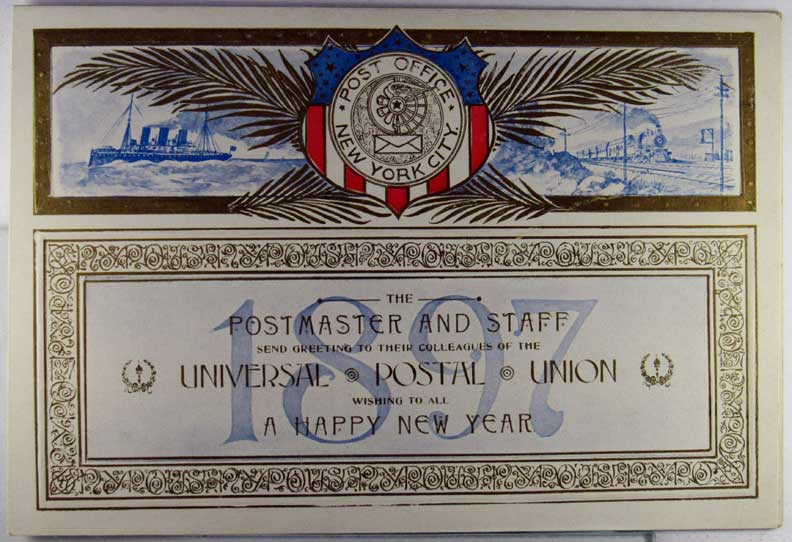 POST OFFICE
NEW YORK CITY.
1897
THE
POSTMASTER AND STAFF
SEND GREETING TO THEIR COLLEAGUES OF THE
UNIVERSAL POSTAL UNION
WISHING TO ALL
A HAPPY NEW YEAR